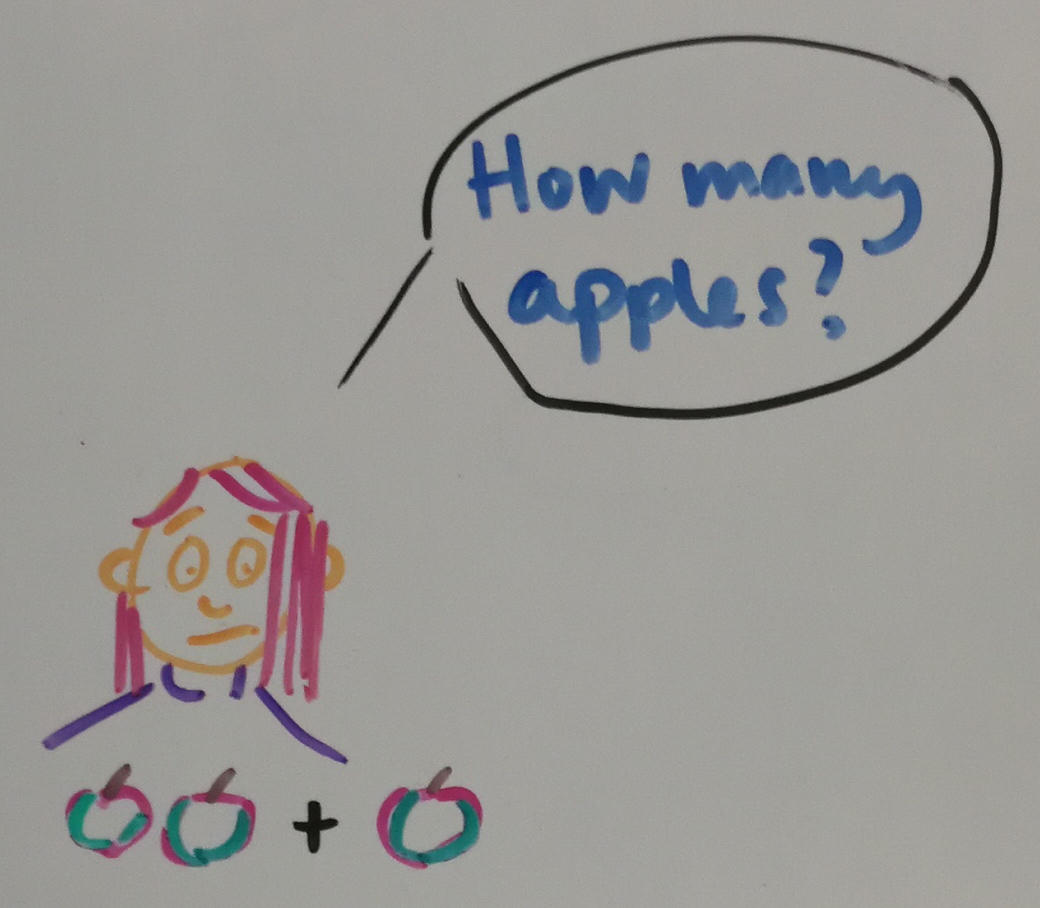 How many
apples?
+